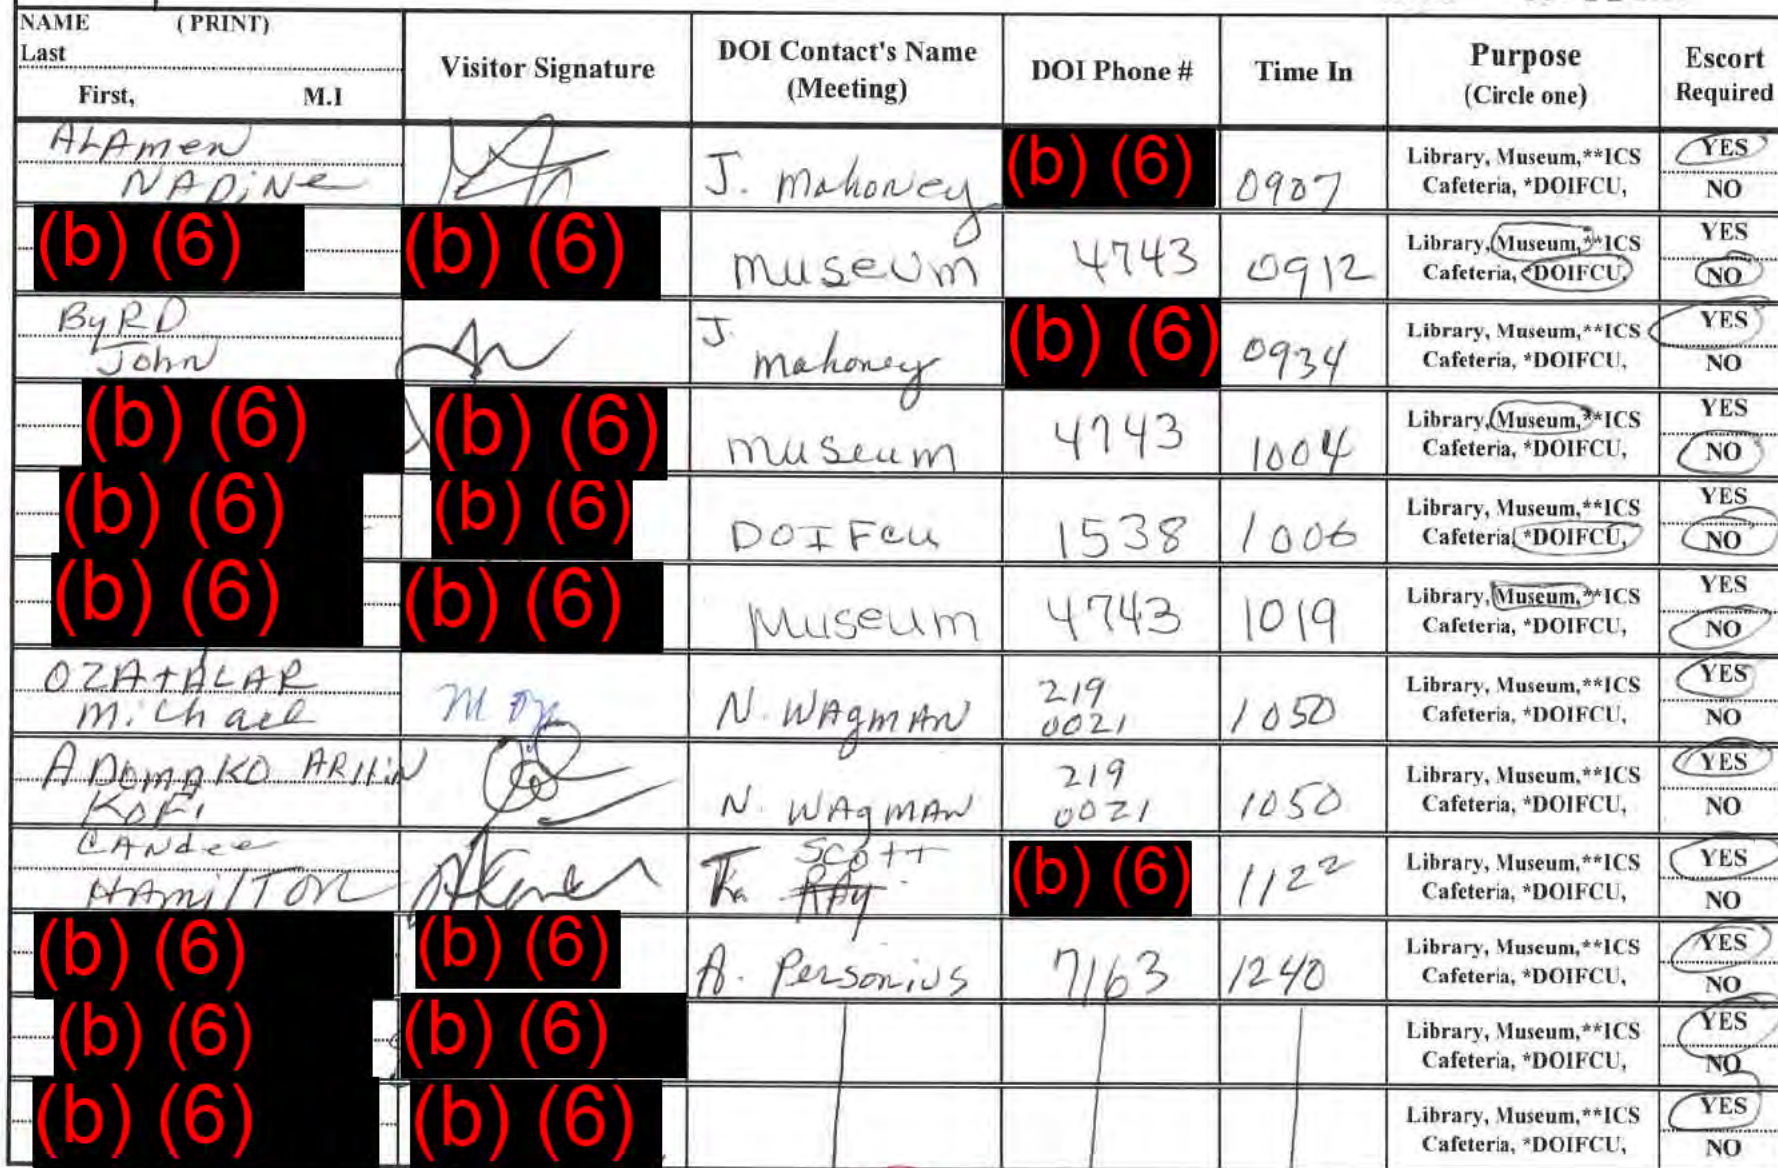 NAME (PRINT)
Last
First, M.I
Visitor Signature
DOI Contact's Name
(Meeting)
DOI Phone #
Time In
Purpose
(Circle one)
Escort
Required
ALAmen
NADiNe
J. Mahoney
(b) (6)
0907
Library, Museum,**ICS
Cafeteria, *DOIFCU,
YES
NO
(b) (6)
(b) (6)
museum
4743
0912
Library, Museum,**ICS
Cafeteria, *DOIFCU,
YES
NO
ByRD
John
J.
mahoney
(b) (6)
0934
Library, Museum,**ICS
Cafeteria, *DOIFCU,
YES
NO
(b) (6)
(b) (6)
museum
4743
1004
Library, Museum,**ICS
Cafeteria, *DOIFCU,
YES
NO
(b) (6)
(b) (6)
DOIFcu
1538
1006
Library, Museum,**ICS
Cafeteria, *DOIFCU,
YES
NO
(b) (6)
(b) (6)
Museum
4743
1019
Library, Museum,**ICS
Cafeteria, *DOIFCU,
YES
NO
OZATALAR
Michael
N. WAgmAN
219
0021
1050
Library, Museum,**ICS
Cafeteria, *DOIFCU,
YES
NO
ADomAKO
KOFi
N. WAgmAN
219
0021
1050
Library, Museum,**ICS
Cafeteria, *DOIFCU,
YES
NO
CANdee
HAmilTON
Scott
(b) (6)
1122
Library, Museum,**ICS
Cafeteria, *DOIFCU,
YES
NO
(b) (6)
(b) (6)
A. Personius
7163
1240
Library, Museum,**ICS
Cafeteria, *DOIFCU,
YES
NO
(b) (6)
(b) (6)
Library, Museum,**ICS
Cafeteria, *DOIFCU,
YES
NO
(b) (6)
(b) (6)
Library, Museum,**ICS
Cafeteria, *DOIFCU,
YES
NO